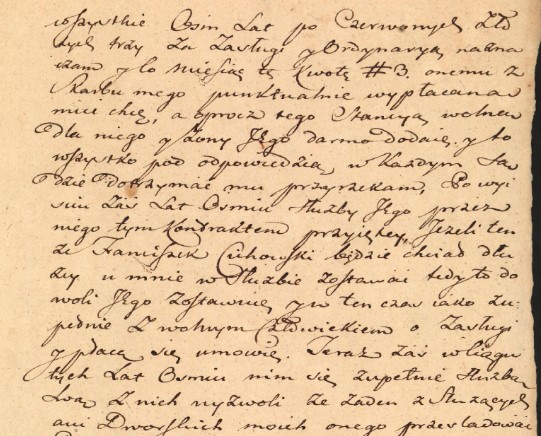 wszystkie Osm Lat po Czerwonych Zło
tych trzy za Zasługi y Ordynaryą nazna
czam y co Miesiąc tę Kwotę # 3. onemu z
Skarbu mego punktualnie wypłacana
mieć chcę, a oprocz tego Stancyą wolną
dla niego y Żony Jego darmo dodaię, y to
wszystko pod odpowiedzią w Kazdym Są
dzie dotrzymać mu przyrzekam, Po wyi
sciu zaś Lat Osmiu Służby Jego przez
niego tym Kontraktem przyiętey, Jeżeli ten
że Franciszek Cichowski będzie chciał dłu
żey u mnie w Służbie zostawać tedy to do
woli Jego zostawuię y w ten czas iako zu
pełnie z wolnym Człowiekiem o Zasługi
y płacę się umowię. Teraz zaś w ciągu
tych Lat Osmiu nim się zupełnie Służbą
swą z nich wyzwoli że żaden z Służących
ani Dworskich moich onego przesladować